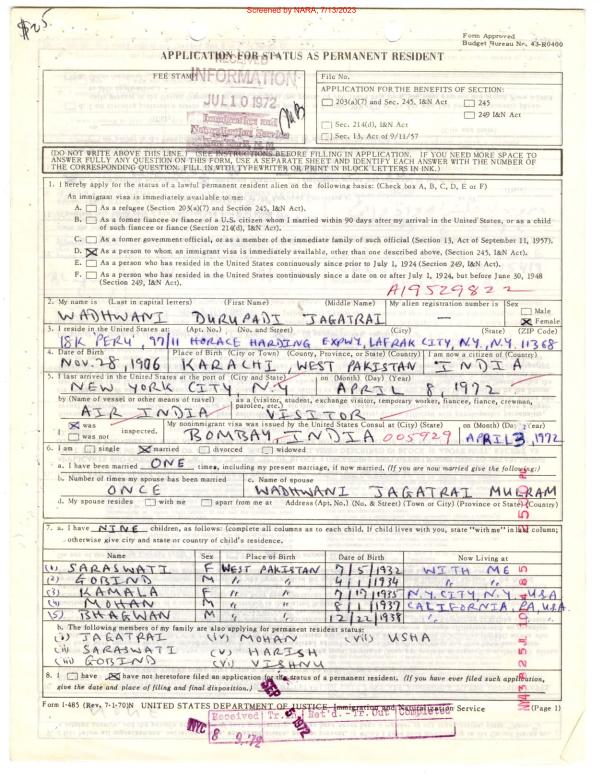 Screened by NARA, 7/13/2023
$25
Form Approved
Budget Bureau No. 43-R0400
APPLICATION FOR STATUS AS PERMANENT RESIDENT
RECEIVED
INFORMATION
JUL 10 1972
Immigration and
Naturalization Service
FEE STAMP
File No.
APPLICATION FOR THE BENEFITS OF SECTION:
203(a)(7) and Sec. 245, I&N Act
245
249 I&N Act
Sec. 214(d), I&N Act
Sec. 13, Act of 9/11/57
(DO NOT WRITE ABOVE THIS LINE.) (SEE INSTRUCTIONS BEFORE FILLING IN APPLICATION. IF YOU NEED MORE SPACE TO
ANSWER FULLY ANY QUESTION ON THIS FORM, USE A SEPARATE SHEET AND IDENTIFY EACH ANSWER WITH THE NUMBER OF
THE CORRESPONDING QUESTION. FILL IN WITH TYPEWRITER OR PRINT IN BLOCK LETTERS IN INK.)
1. I hereby apply for the status of a lawful permanent resident alien on the following basis: (Check box A, B, C, D, E or F)
An immigrant visa is immediately available to me:
A. As a refugee (Section 203(a)(7) and Section 245, I&N Act).
B. As a former fiancee or fiance of a U.S. citizen whom I married within 90 days after my arrival in the United States, or as a child
of such fiancee or fiance (Section 214(d), I&N Act).
C. As a former government official, or as a member of the immediate family of such official (Section 13, Act of September 11, 1957).
D. X As a person to whom an immigrant visa is immediately available, other than one described above, (Section 245, I&N Act).
E. As a person who has resided in the United States continuously since prior to July 1, 1924 (Section 249, I&N Act).
F. As a person who has resided in the United States continuously since a date on or after July 1, 1924, but before June 30, 1948
(Section 249, I&N Act).
A19529822
2. My name is (Last in capital letters) (First Name) (Middle Name) My alien registration number is Sex
WADHWANI DURUPADI JAGATRAI — Male
X Female
3. I reside in the United States at: (Apt. No.) (No. and Street) (City) (State) (ZIP Code)
18K 'PERU', 97/11 HORACE HARDING EXPWY, LAFRAK CITY, N.Y., N.Y. 11368
4. Date of Birth Place of Birth (City or Town) (County, Province, or State) (Country) I am now a citizen of (Country)
NOV. 28, 1906 KARACHI, WEST PAKISTAN INDIA
5. I last arrived in the United States at the port of (City and State) on (Month) (Day) (Year)
NEW YORK CITY, N.Y APRIL 8, 1972
by (Name of vessel or other means of travel) as a (visitor, student, exchange visitor, temporary worker, fiancee, fiance, crewman,
parolee, etc.)
AIR INDIA VISITOR
I X was inspected. My nonimmigrant visa was issued by the United States Consul at (City) (State) on (Month) (Day) (Year)
was not BOMBAY, INDIA 005929 APRIL 3, 1972
6. I am single X married divorced widowed
a. I have been married ONE times, including my present marriage, if now married. (If you are now married give the following:)
b. Number of times my spouse has been married c. Name of spouse
ONCE WADHWANI JAGATRAI MULRAM
d. My spouse resides with me apart from me at Address (Apt. No.) (No. & Street) (Town or City) (Province or State) (Country)
7. a. I have NINE children, as follows: (complete all columns as to each child. If child lives with you, state "with me" in last column;
otherwise give city and state or country of child's residence).
Name Sex Place of Birth Date of Birth Now Living at
(1) SARASWATI F WEST PAKISTAN 7/5/1932 WITH ME
(2) GOBIND M " " 4/1/1934 " "
(3) KAMALA F " " 7/17/1935 N.Y. CITY, N.Y, USA
(4) MOHAN M " " 8/1/1937 CALIFORNIA, PA, U.S.A.
(5) BHAGWAN M " " 12/22/1938 " "
b. The following members of my family are also applying for permanent resident status:
(i) JAGATRAI (iv) MOHAN (vii) USHA
(ii) SARASWATI (v) HARISH
(iii) GOBIND (vi) VISHNU
8. I have X have not heretofore filed an application for the status of a permanent resident. (If you have ever filed such application,
give the date and place of filing and final disposition.)
SEP 5 1972
Form I-485 (Rev. 7-1-70)N UNITED STATES DEPARTMENT OF JUSTICE Immigration and Naturalization Service (Page 1)
NYC
Received Tr. Ret'd. -Tr. Out Completed
8 9 '72